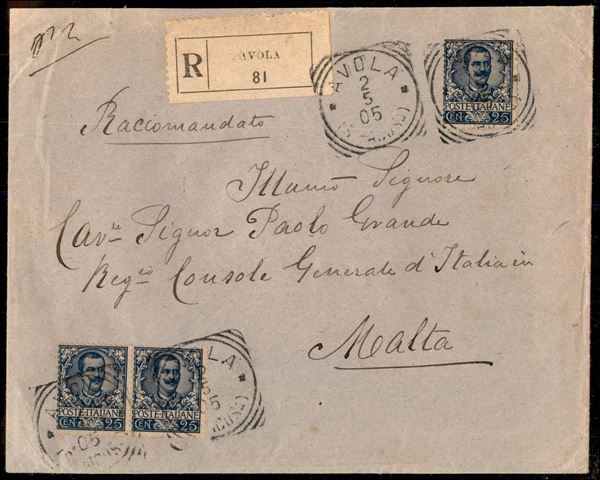 R
AVOLA
81
AVOLA
2
5
05
POSTE·ITALIANE
CEN 25
Raccomandato
Illmo Signore
Cavre Signor Paolo Grande
Regio Console Generale d'Italia in
Malta
POSTE·ITALIANE
CEN 25
POSTE·ITALIANE
CEN 25
05